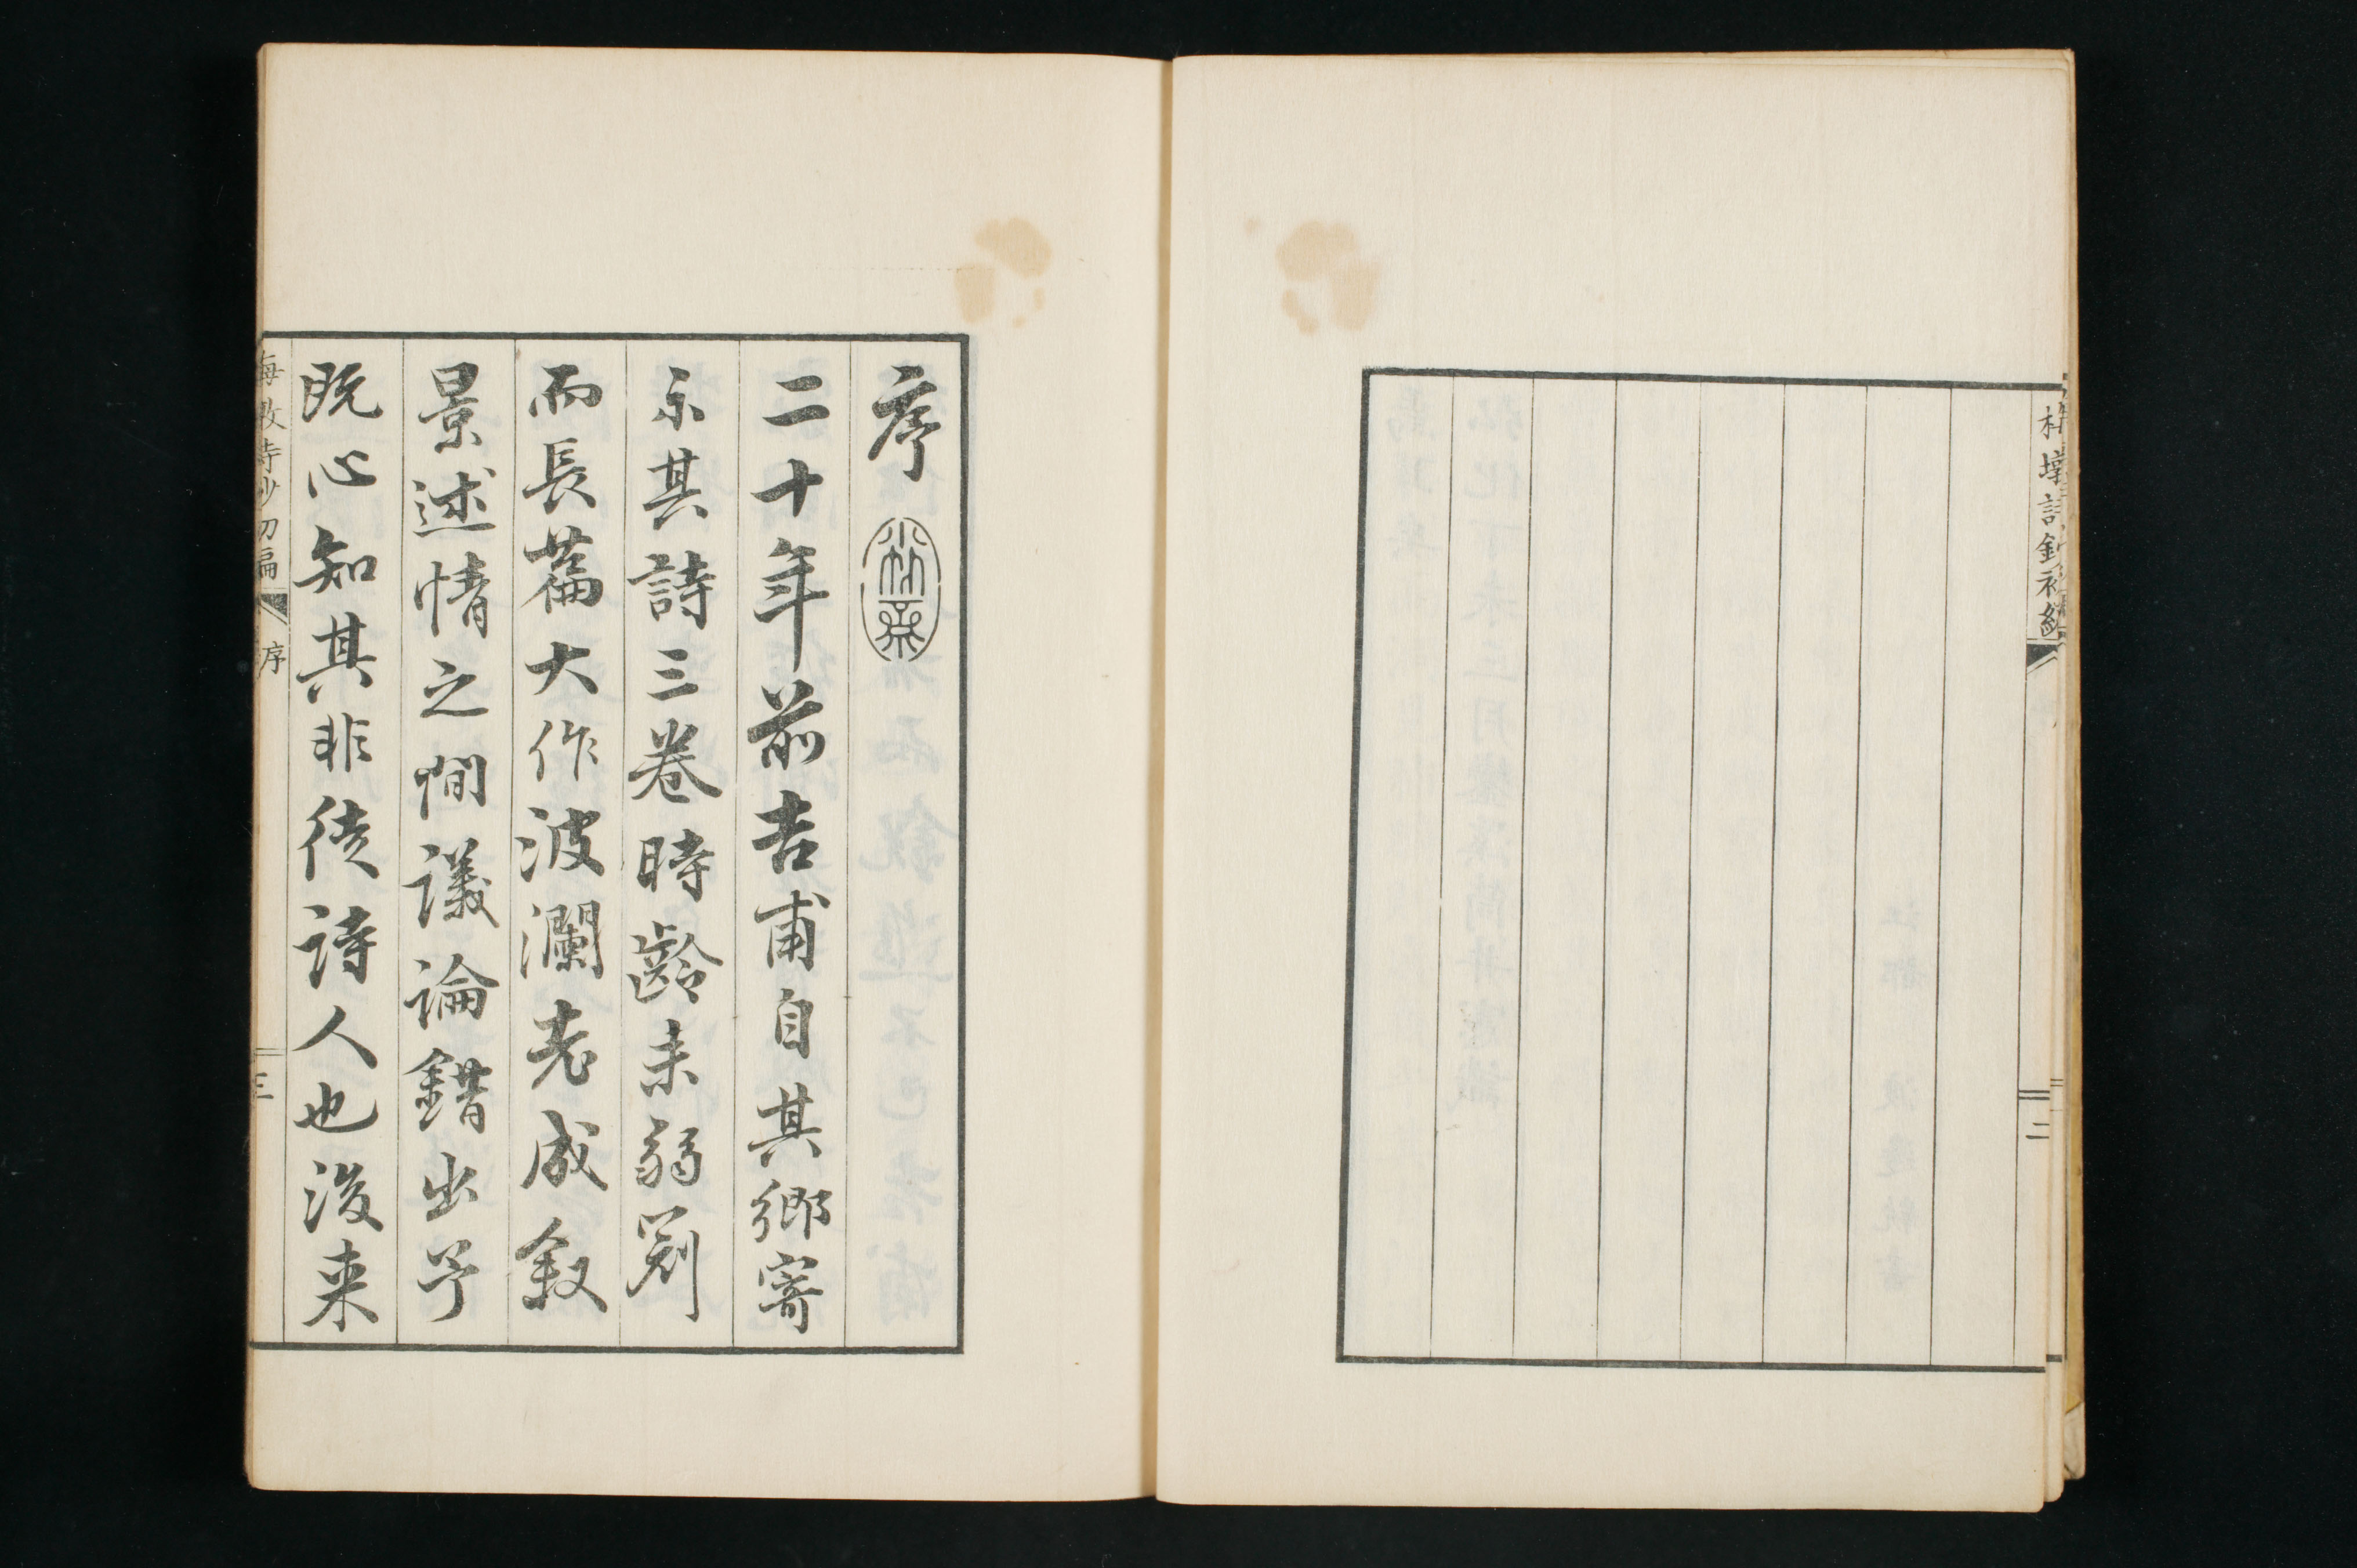 二
序
二十年前吉甫自其鄉寄
示其詩三卷時齡未弱冠
而長篇大作波瀾老成敘
景述情之間議論錯出予
既心知其非徒詩人也後来
序
三